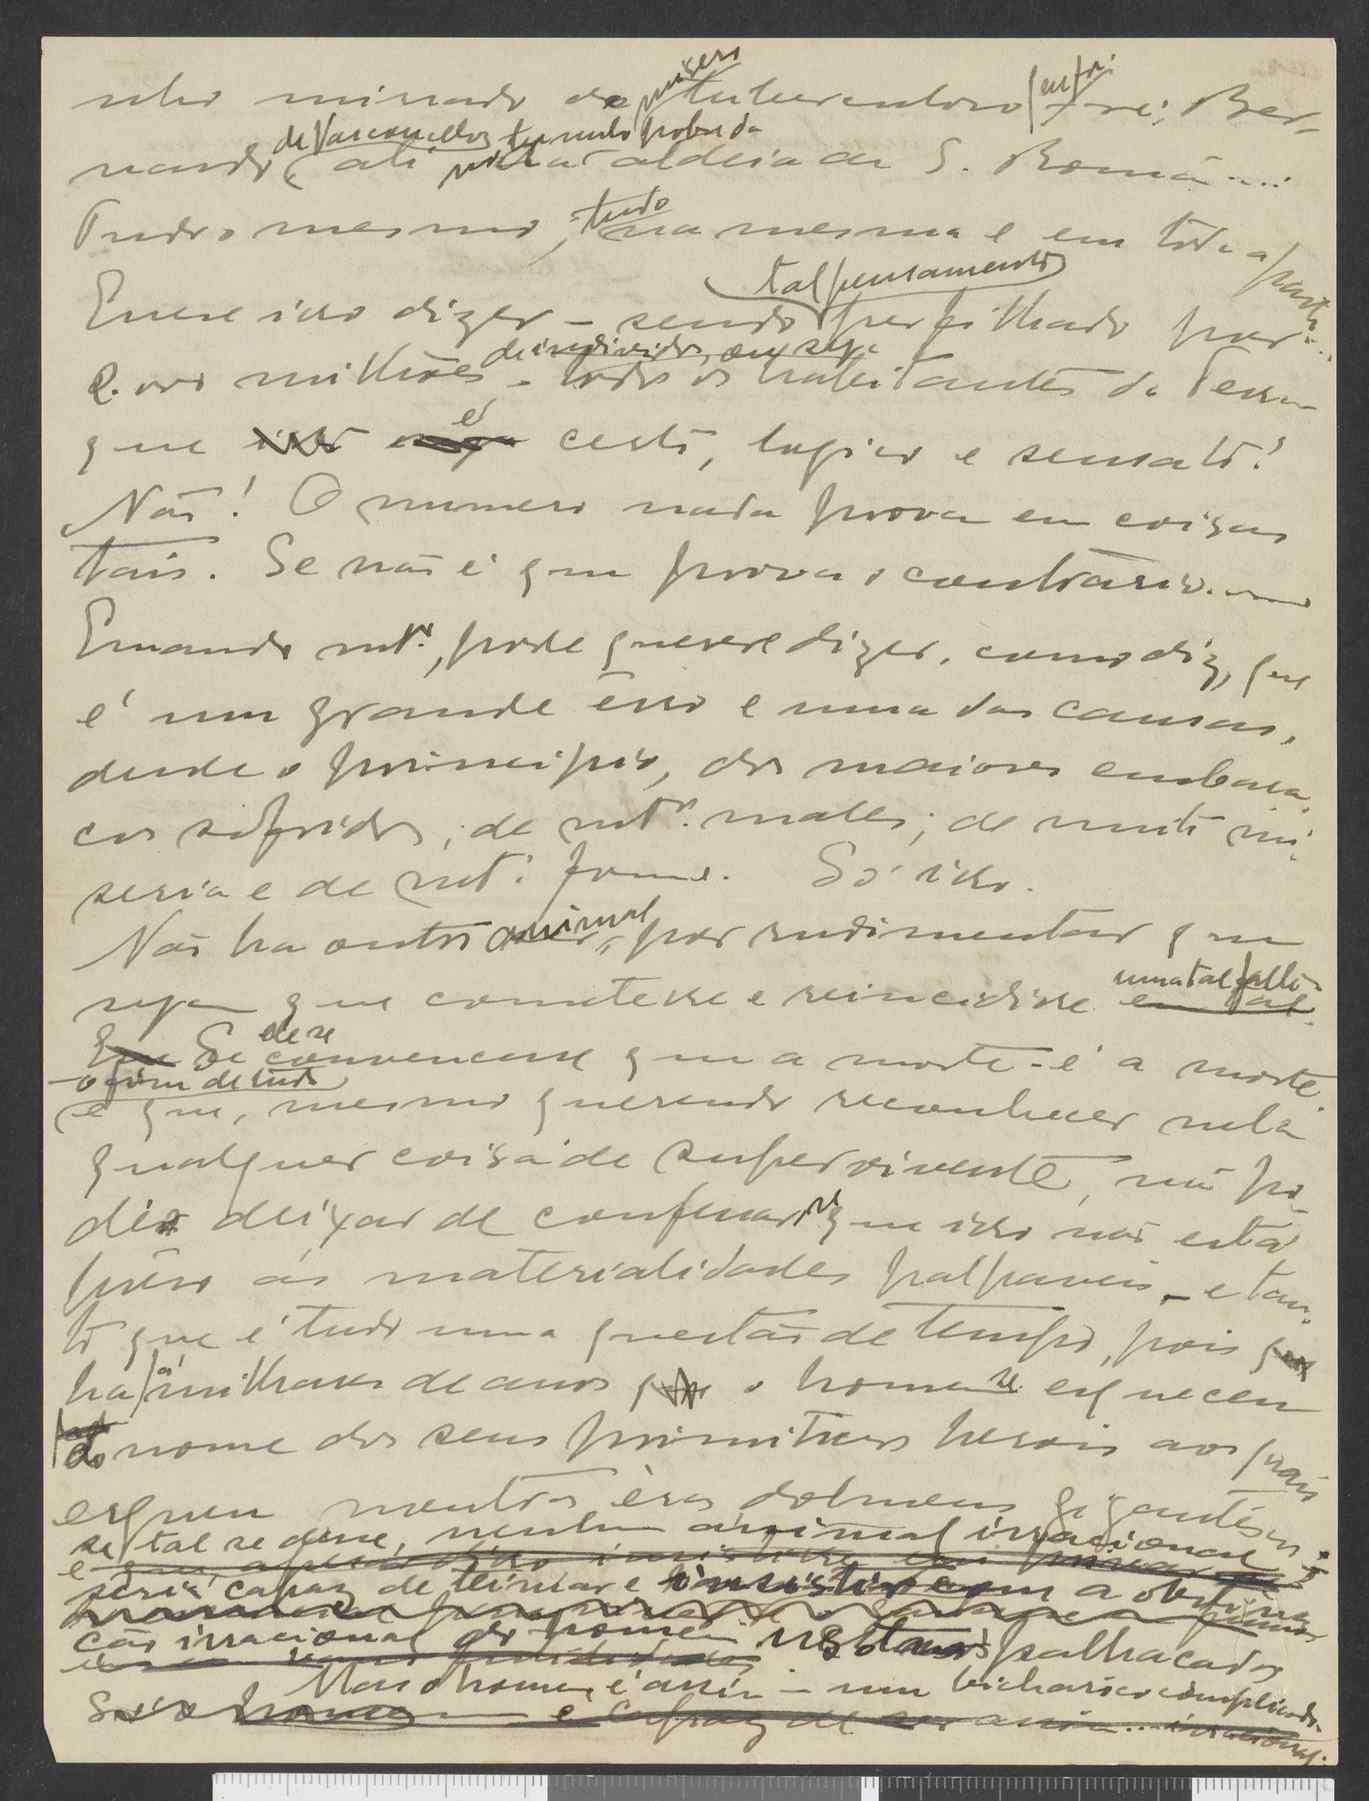 nho minado do misero tuberculoso 
nardo de Vasconcellos, tumulo pobre da ali na aldeia de S. Romã....
Tudo o mesmo, tudo na mesma e em toda a parte...
Quere isso dizer - sendo tal pensamento perfilhado por
2.000 milhões de individuos, ou seja todos os habitantes da Terra
que é certo, logico e sensato?
Não! O numero nada prova em coisas
tais. Se não é que prova o contrário.
Quando mt.º, pode querer dizer, como diz, que
é um grande êrro e uma das causas,
desde o principio, dos maiores embara-
ços sofridos; de mt.ºs males; de muita mi-
seria e de mt.ª fome. Só isso.
Não ha outro animal, por rudimentar que
seja que cometesse e reincidisse uma tal falta.
Que Se ele se convencesse que a morte é a morte
- o fim de tudo
e que, mesmo querendo reconhecer nela
qualquer coisa de supervivente, não po-
dia deixar de confessar que isso não está
prêso ás materialidades palpaveis - e tan-
to que é tudo uma questão de tempo, pois
ha já milhares de anos o homem se esqueceu
do nome dos seus primitivos herois aos quais
ergueu noutras éras dolmens gigantescos;
se tal se désse, nenhum animal irracional
seria capaz de teimar e insistir com a obstina-
ção irracional do homem palhaçadas
Mas o homem é assim - um bicharoco complicado.
Só o homem é capaz de ser assim... irracional.